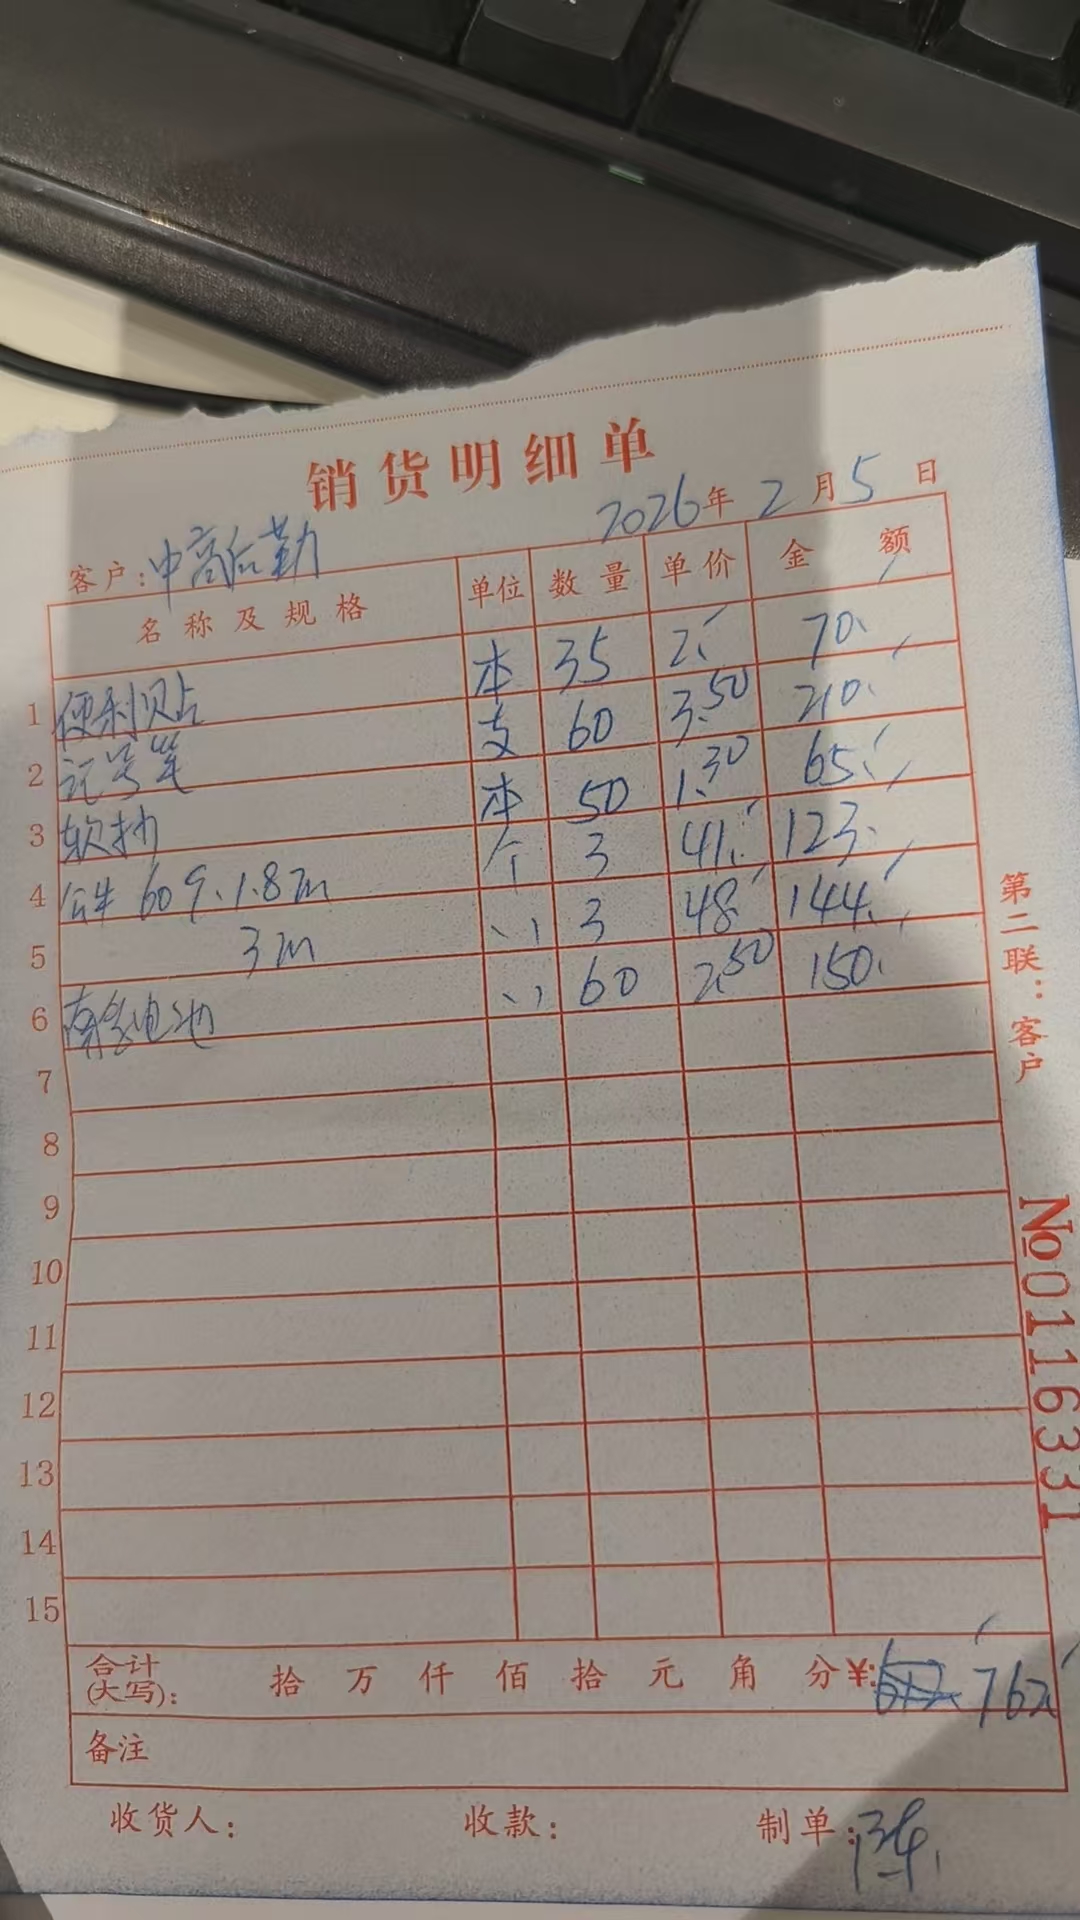 销货明细单
2026年 2月5日
客户：中商后勤
名称及规格 单位 数量 单价 金额
1 便利贴 本 35 2.- 70.-
2 记号笔 支 60 3.50 210.-
3 软抄 本 50 1.30 65.-
4 公牛 609.1.8m 个 3 41.- 123.-
5 3m 〃 3 48.- 144.-
6 南孚电池 〃 60 2.50 150.-
7
8
9
10
11
12
13
14
15
合计(大写): 拾 万 仟 佰 拾 元 角 分 ¥: 762
备注
收货人: 收款: 制单: 陈
第二联：客户
№0116331